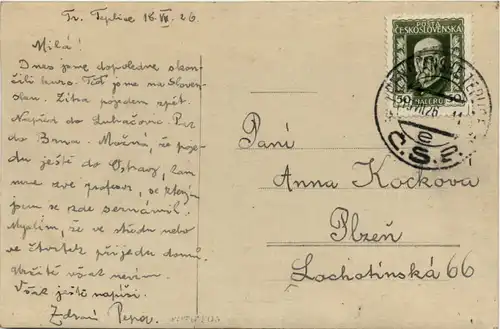 Tr. Teplice 18.VII.26
Milá!
Dnes jsme dopoledne skon-
čili kurs. Teď jsme na Sloven-
sku. Zítra pojedem zpět.
Nejdřív do Luhačovic. Pak
do Brna. Možná, že poje-
du ještě do Ostravy, kam
mne zve profesor, se kterým
jsem se zde seznámil.
Myslím, že ve středu nebo
ve čtvrtek přijedu domů.
Určitě však nevím.
Však ještě napíši.
Zdraví Pepa.
POŠTA
ČESKOSLOVENSKÁ
50 HALÉŘŮ
TRENČIANSKE TEPLICE
VII.26
e
Č.S.P.
Paní
Anna Kocková
Plzeň
Lochotínská 66